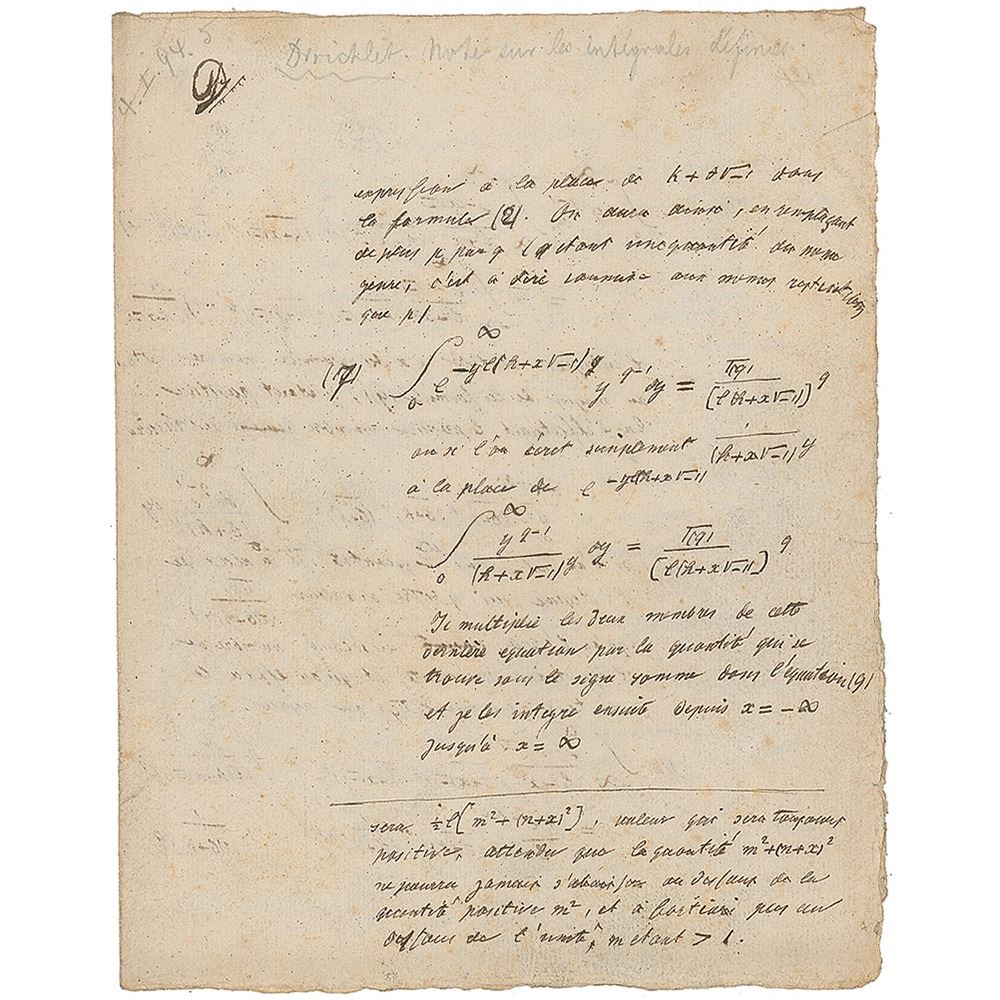 4. I. 94. 5
Dirichlet. Note sur les intégrales définies.
expression à la place de k + θ√-1 dans
la formule (2). On aura ainsi, en remplaçant
de plus p par q (q étant une quantité du meme
genre, c'est à dire soumise aux memes restrictions
que p).
(7) ∫₀^∞ e^{-yl(k+x√-1)} y^{q-1} dy = Γ(q) / [l(k+x√-1)]^q
ou si l'on écrit simplement 1/(k+x√-1)^y
à la place de e^{-yl(k+x√-1)}
∫₀^∞ y^{q-1} / (k+x√-1)^y dy = Γ(q) / [l(k+x√-1)]^q
Je multiplie les deux membres de cette
dernière equation par la quantité qui se
trouve sous le signe somme dans l'équation (9)
et je les integre ensuite depuis x = -∞
jusqu'à x = ∞
sera ½ l[m² + (n+x)²], valeur qui sera toujours
positive, attendu que la quantité m²+(n+x)²
ne pourra jamais s'abaisser au dessous de la
quantité positive m², et à fortiori pas au
dessous de l'unité, m etant > 1.